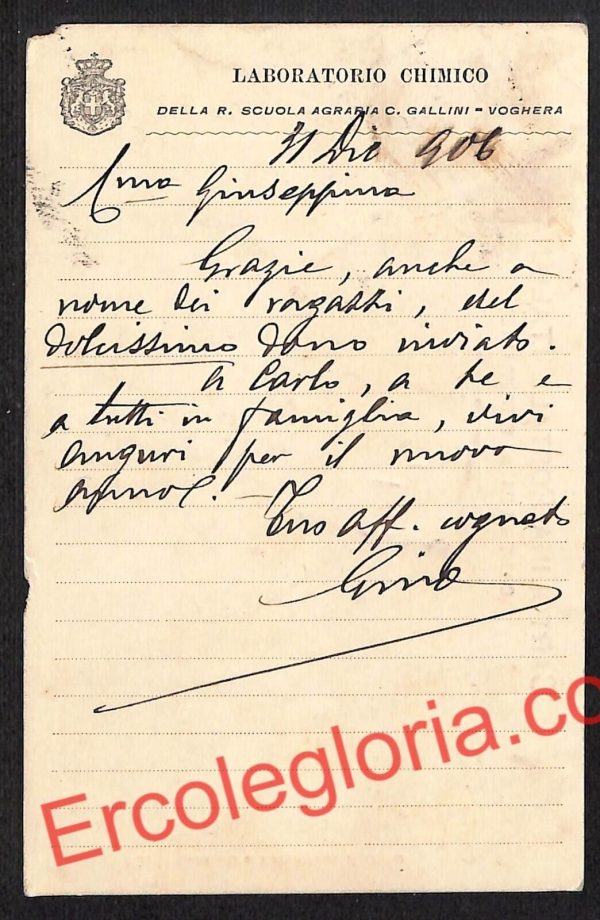 LABORATORIO CHIMICO
DELLA R. SCUOLA AGRARIA C. GALLINI - VOGHERA
31 Dic 906
Cma Giuseppina
Grazie, anche a
nome dei ragazzi, del
dolcissimo dono inviato.
A Carlo, a te e
a tutti in famiglia, vivi
auguri per il nuovo
anno.
Tuo aff. cognato
Gino
Ercolegloria.co